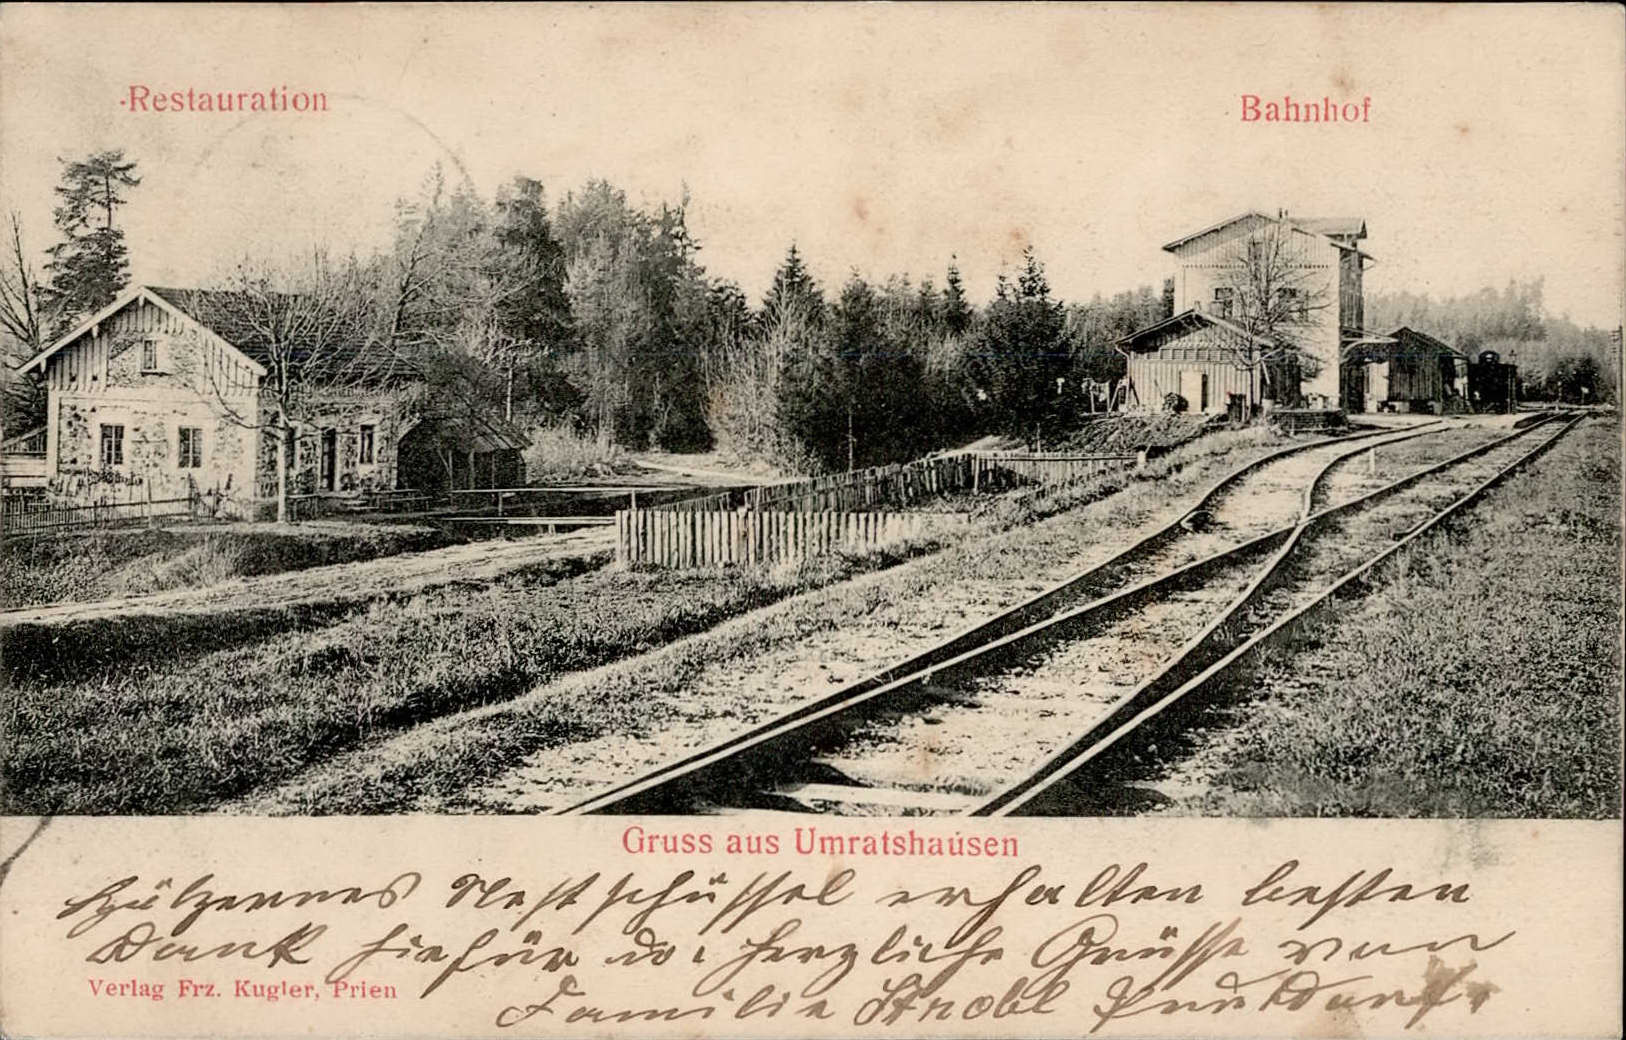 Restauration
Bahnhof
Gruss aus Umratshausen
Hölzernes Nestschüssel erhalten besten
Dank hiefür u. herzliche Grüsse von
Verlag Frz. Kugler, Prien
Familie Strobl